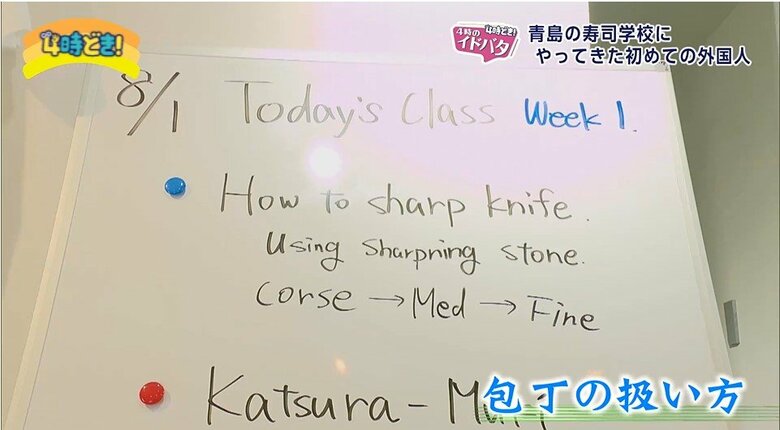 4時どき!
4時のイドバタ 4時どき!
青島の寿司学校に
やってきた初めての外国人
8/1 Today's Class Week 1.
How to sharp knife.
Using Sharpning stone.
Corse → Med → Fine
Katsura -
包丁の扱い方